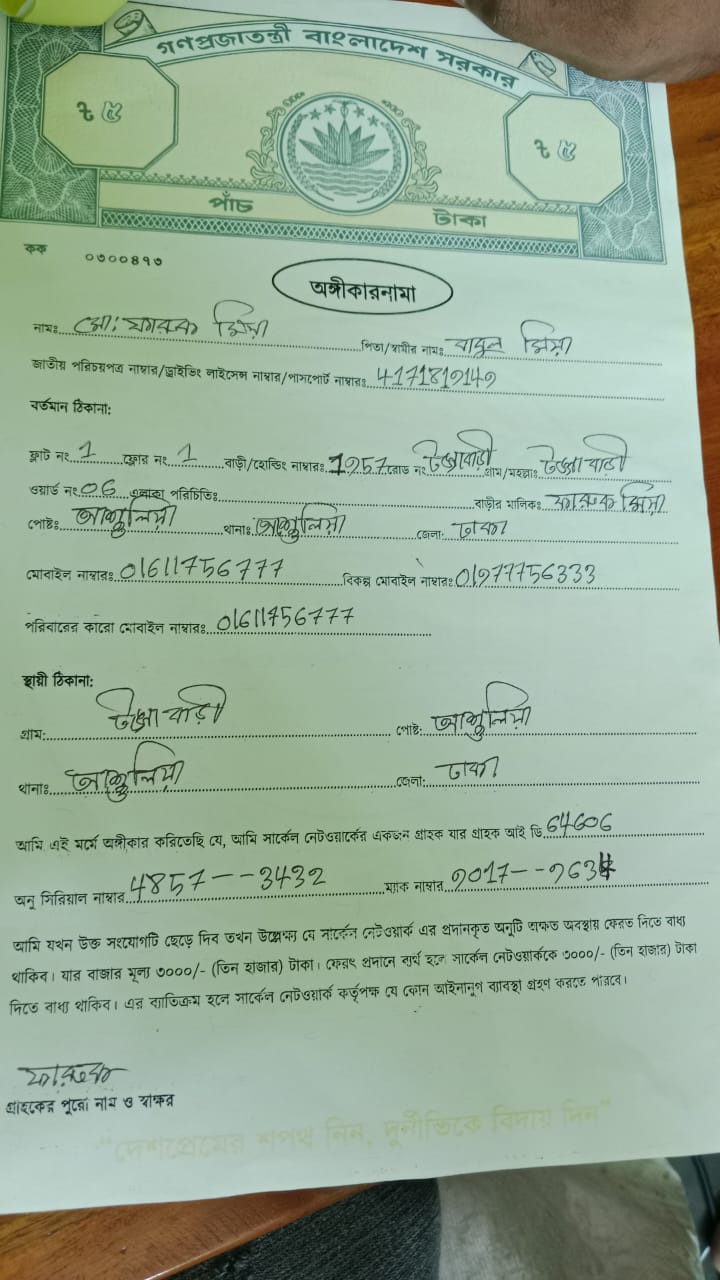 গণপ্রজাতন্ত্রী বাংলাদেশ সরকার
৳ ৫
৳ ৫
পাঁচ টাকা
কক ০৩০০৪৭৩
অঙ্গীকারনামা
নামঃ মো: ফারুক মিয়া পিতা/স্বামীর নামঃ বাবুল মিয়া
জাতীয় পরিচয়পত্র নাম্বার/ড্রাইভিং লাইসেন্স নাম্বার/পাসপোর্ট নাম্বারঃ
বর্তমান ঠিকানা:
ফ্লাট নং 1 ফ্লোর নং 1 বাড়ী/হোল্ডিং নাম্বারঃ রোড নং টঙ্গাবাড়ী গ্রাম/মহল্লাঃ টঙ্গাবাড়ী
ওয়ার্ড নং 06 এলাকা পরিচিতিঃ বাড়ীর মালিকঃ ফারুক মিয়া
পোষ্টঃ আশুলিয়া থানাঃ আশুলিয়া জেলা: ঢাকা
মোবাইল নাম্বারঃ 01611756777 বিকল্প মোবাইল নাম্বারঃ 01977756333
পরিবারের কারো মোবাইল নাম্বারঃ 01611756777
স্থায়ী ঠিকানা:
গ্রাম: টঙ্গাবাড়ী পোষ্ট: আশুলিয়া
থানাঃ আশুলিয়া জেলা: ঢাকা
আমি এই মর্মে অঙ্গীকার করিতেছি যে, আমি সার্কেল নেটওয়ার্কের একজন গ্রাহক যার গ্রাহক আই ডি 64606
অনু সিরিয়াল নাম্বার 4857--3432 ম্যাক নাম্বার
আমি যখন উক্ত সংযোগটি ছেড়ে দিব তখন উল্লেক্ষ্য যে সার্কেল নেটওয়ার্ক এর প্রদানকৃত অনুটি অক্ষত অবস্থায় ফেরত দিতে বাধ্য
থাকিব। যার বাজার মূল্য ৩০০০/- (তিন হাজার) টাকা। ফেরৎ প্রদানে ব্যর্থ হলে সার্কেল নেটওয়ার্ককে ৩০০০/- (তিন হাজার) টাকা
দিতে বাধ্য থাকিব। এর ব্যতিক্রম হলে সার্কেল নেটওয়ার্ক কর্তৃপক্ষ যে কোন আইনানুগ ব্যাবস্থা গ্রহণ করতে পারবে।
ফারুক
গ্রাহকের পুরো নাম ও স্বাক্ষর
"দেশপ্রেমের শপথ নিন, দুর্নীতিকে বিদায় দিন"